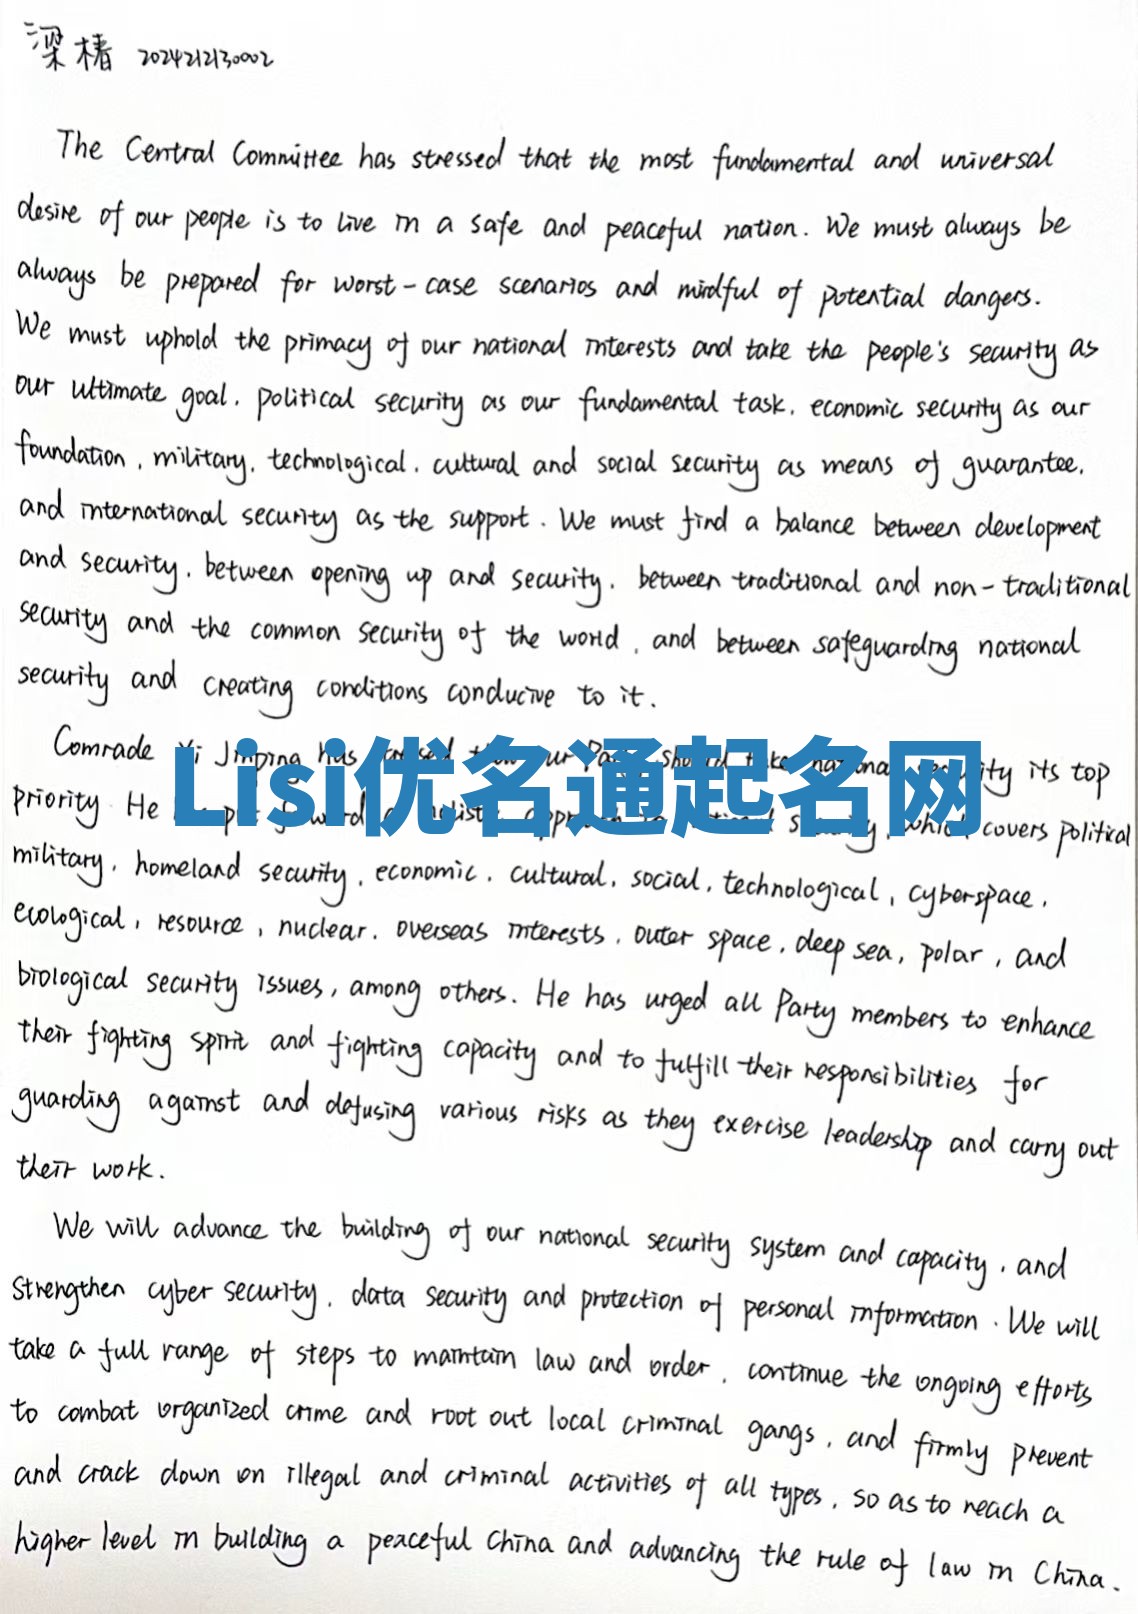 梁椿 2024212130002
The Central Committee has stressed that the most fundamental and universal
desire of our people is to live in a safe and peaceful nation. We must always be
always be prepared for worst-case scenarios and mindful of potential dangers.
We must uphold the primacy of our national interests and take the people's security as
our ultimate goal, political security as our fundamental task, economic security as our
foundation, military, technological, cultural and social security as means of guarantee,
and international security as the support. We must find a balance between development
and security, between opening up and security, between traditional and non-traditional
security and the common security of the world, and between safeguarding national
security and creating conditions conducive to it.
Comrade Xi Jinping has its top
Lisi优名通起名网
priority. He covers political
military, homeland security, economic, cultural, social, technological, cyberspace,
ecological, resource, nuclear, overseas interests, outer space, deep sea, polar, and
biological security issues, among others. He has urged all Party members to enhance
their fighting spirit and fighting capacity and to fulfill their responsibilities for
guarding against and defusing various risks as they exercise leadership and carry out
their work.
We will advance the building of our national security system and capacity, and
strengthen cyber security, data security and protection of personal information. We will
take a full range of steps to maintain law and order, continue the ongoing efforts
to combat organized crime and root out local criminal gangs, and firmly prevent
and crack down on illegal and criminal activities of all types, so as to reach a
higher level in building a peaceful China and advancing the rule of law in China.